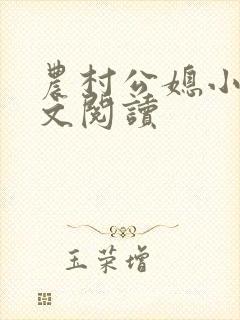 農村公媳小
文閱讀
玉荣增